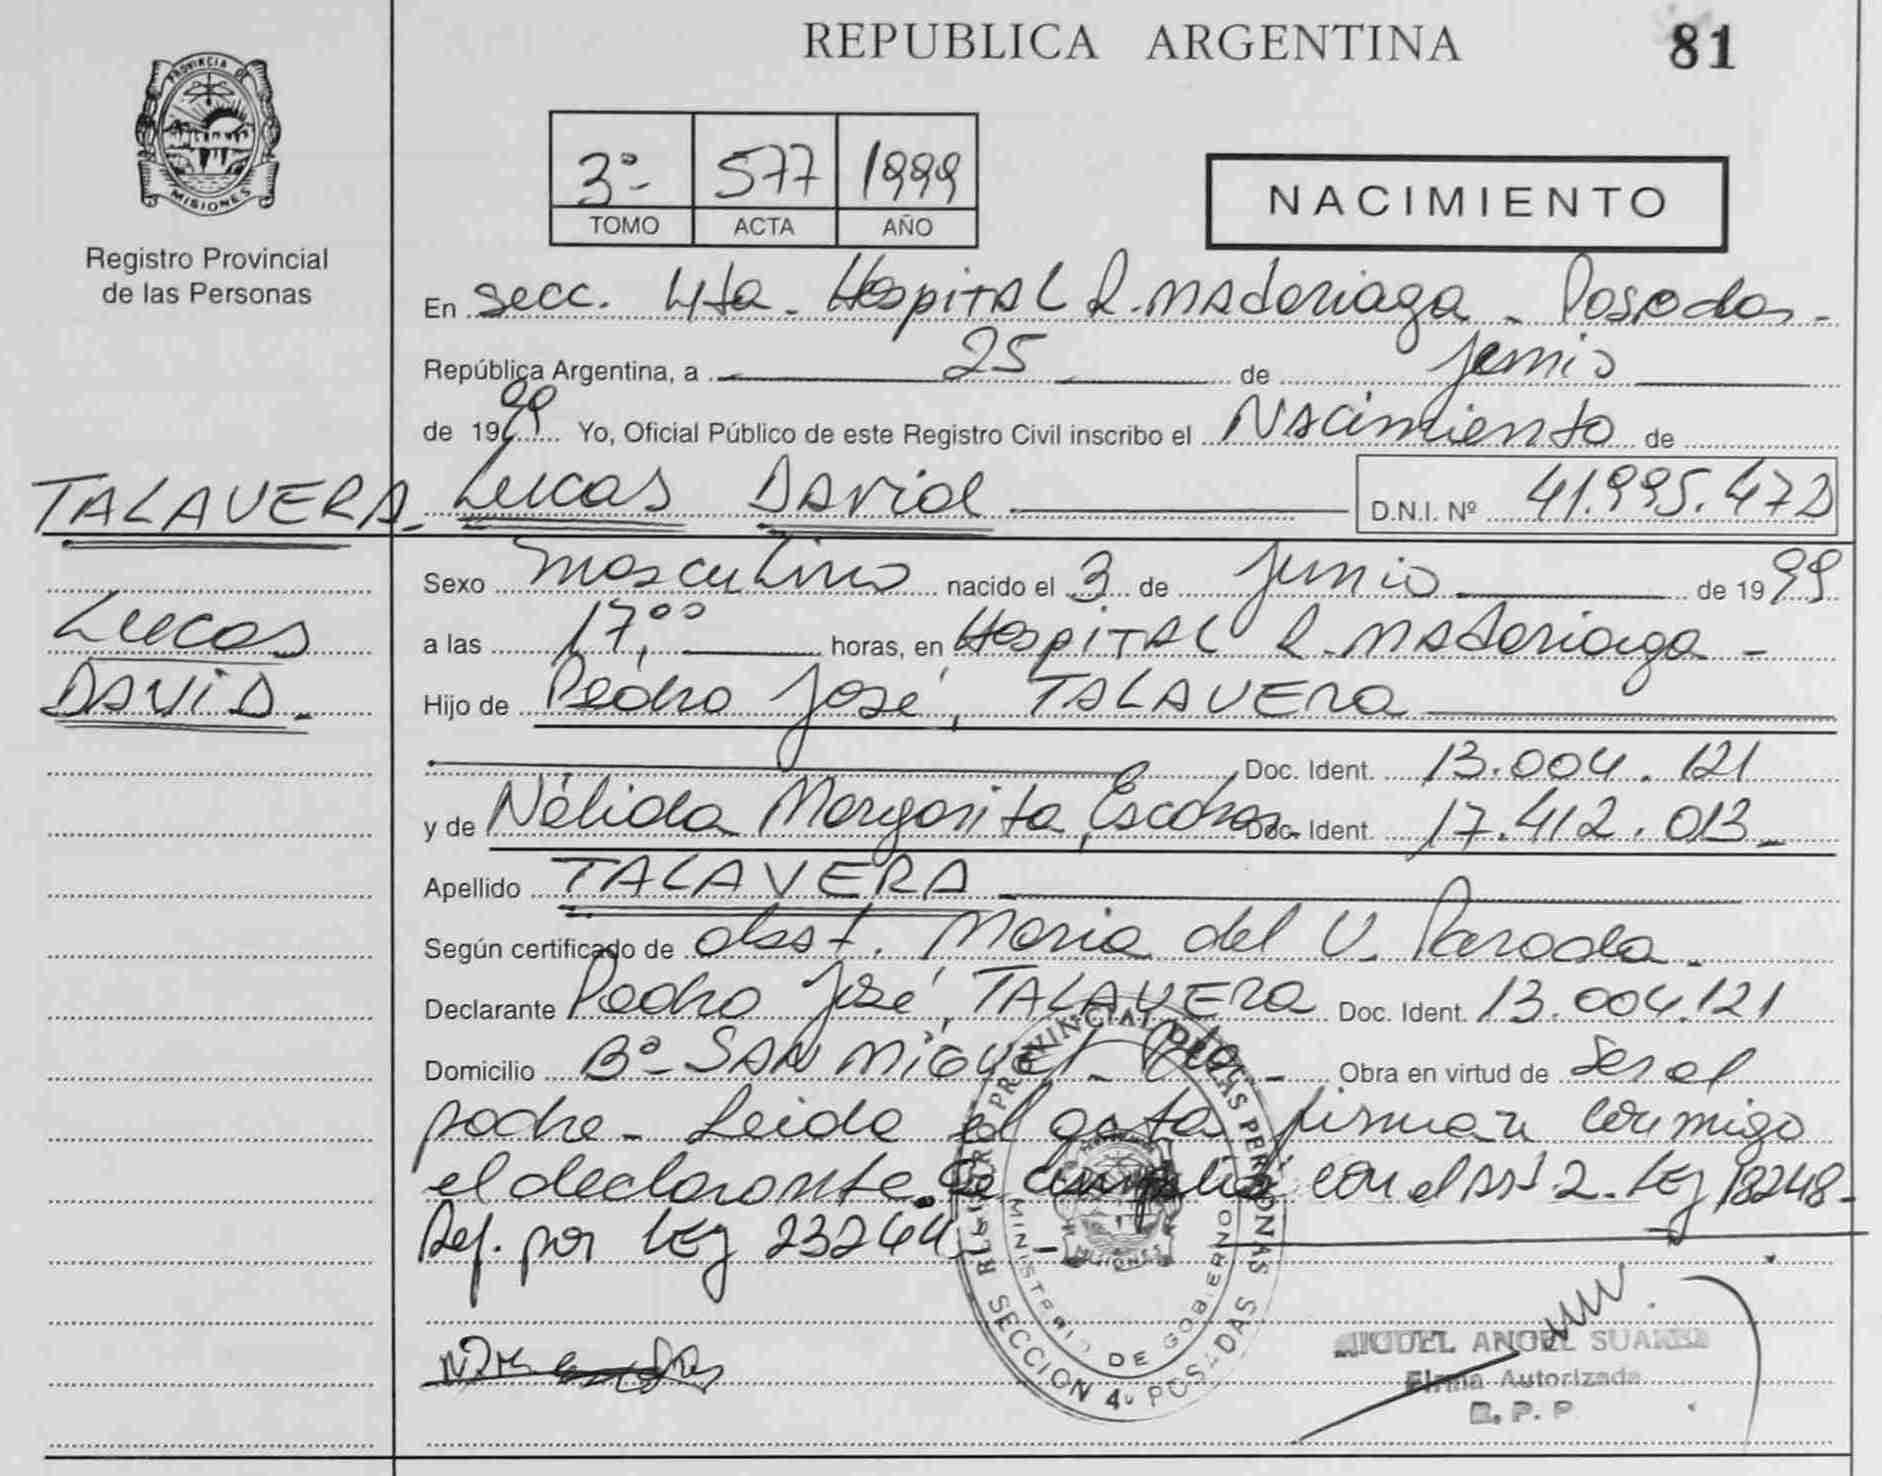 REPUBLICA ARGENTINA
81
PROVINCIA DE
MISIONES
Registro Provincial
de las Personas
3º- 577 1999
TOMO ACTA AÑO
NACIMIENTO
En Secc. 4ta - Hospital R. Madariaga - Posadas -
República Argentina, a 25 de junio
de 1999 Yo, Oficial Público de este Registro Civil inscribo el Nacimiento de
TALAVERA. Lucas David D.N.I. Nº 41.995.472
Sexo masculino nacido el 3 de junio de 1999
Lucas
a las 17,00 horas, en Hospital R. Madariaga -
DAVID.
Hijo de Pedro José, TALAVERA
Doc. Ident. 13.004.121
y de Nélida Margarita, Escobar Doc. Ident. 17.412.013 -
Apellido TALAVERA
Según certificado de obst. Maria del V. Paroda -
Declarante Pedro José, TALAVERA Doc. Ident. 13.004.121
Domicilio Bº - SAN MIGUEL - - Obra en virtud de Ser el
padre - Leida el acta, firman conmigo
el declarante. Se cumplió con el Art 2 - Ley 18248 -
Ref. por Ley 23264 -
REGISTRO PROVINCIAL DE LAS PERSONAS
MINISTERIO DE GOBIERNO
SECCION 4º POSADAS
MISIONES
MIGUEL ANGEL SUAREZ
Firma Autorizada
R. P. P